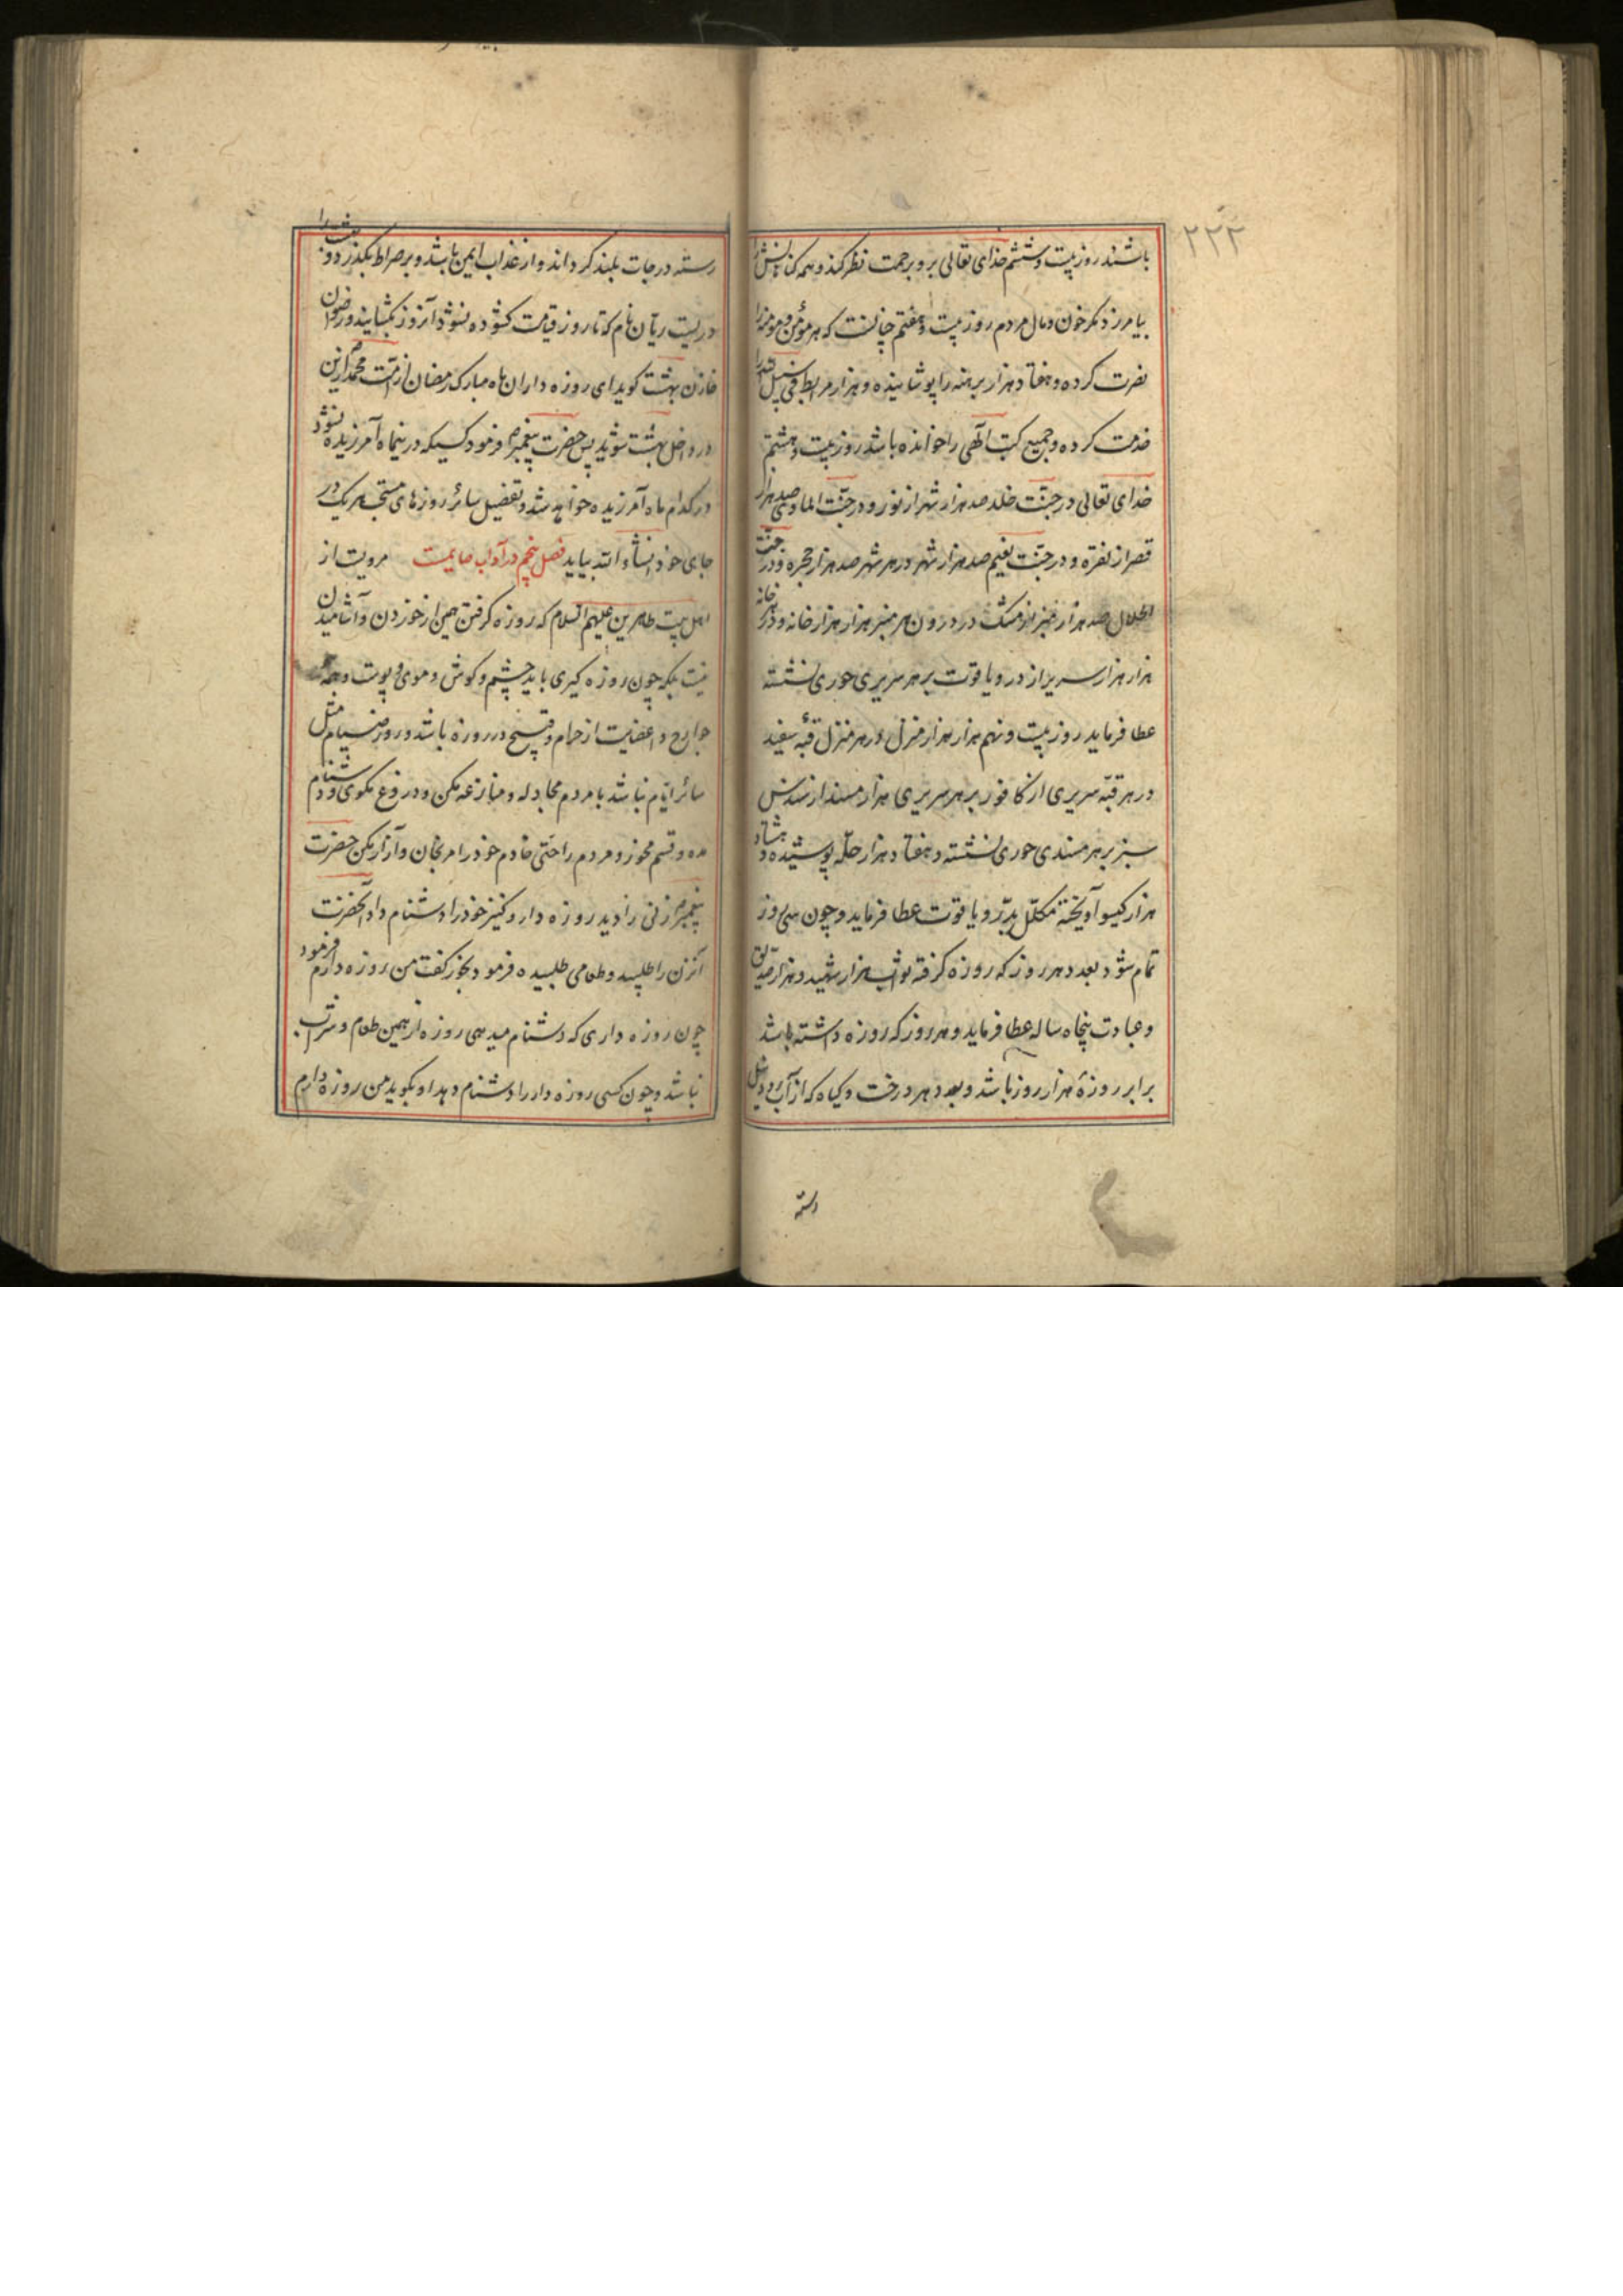 ۲۲۲
باشند روز بیست و ششم خدای تعالی برو برحمت نظر کند و همه گناهانش را
بیامرزد مگر خون و مال مردم روز بیست و هفتم چنانست که هر مؤمن و مومنه را
نصرت کرده و هفتاد هزار برهنه را پوشانیده و هزار مرابط فی سبیل الله را
خدمت کرده و جمیع کتب الهی را خوانده باشد روز بیست و هشتم
خدای تعالی در جنّت خلد صد هزار شهر از نور و در جنّت الماوی صد هزار
قصر از نقره و در جنّت نعیم صد هزار شهر در هر شهر صد هزار حجره و در جنّت
الجلال صد هزار منبر از مشک در درون هر منبر هزار هزار خانه و در هر خانه
هزار هزار سریر از در و یاقوت بر هر سریری حوری نشسته
عطا فرماید روز بیست و نهم هزار هزار منزل در هر منزل قبّهٔ سفید
در هر قبّه سریری از کافور بر هر سریری هزار مسند از سندس
سبز بر هر مسندی حوری نشسته و هفتاد هزار حلّه پوشیده و هشتاد
هزار گیسو آویخته مکلّل بدرّ و یاقوت عطا فرماید و چون سی روز
تمام شود بعدد هر روز که روزه گرفته ثواب هزار شهید و هزار صدیق
و عبادت پنجاه ساله عطا فرماید و هر روز که روزه داشته باشد
برابر روزهٔ هزار روز باشد و بعدد هر درخت و گیاه که از آب رود نیل
رسته
رسته درجات بلند گرداند و از عذاب ایمن باشد و بر صراط بگذرد و بهشت را
دریست ریّان نام که تا روز قیامت گشوده نشود آنروز بگشایند و رضوان
خازن بهشت گوید ای روزه داران ماه مبارک رمضان از امّت محمّد از این
در داخل بهشت شوید پس حضرت پیغمبر فرمود کسیکه درینماه آمرزیده نشود
در کدام ماه آمرزیده خواهد شد و تفضیل سائر روزهای مستحبه هریک در
جای خود انشاء الله بیاید فصل پنجم در آداب صایمست مرویست از
اهل بیت طاهرین علیهم السلام که روزه گرفتن همین از خوردن و آشامیدن
نیست بلکه چون روزه گیری باید چشم و گوش و موی و پوست و همه
جوارح و اعضایت از حرام و قبیح در روزه باشد و روز صیام مثل
سائر ایّام نباشد با مردم مجادله و منازعه مکن و دروغ مگوی و دشنام
مده و قسم مخور و مردم را حتّی خادم خود را مرنجان و آزار مکن حضرت
پیغمبر زنی را دید روزه دار و کنیز خود را دشنام داد آنحضرت
آنزن را طلبید و طعامی طلبیده فرمود بخور گفت من روزه دارم فرمود
چون روزه داری که دشنام میدهی روزه از همین طعام و شراب
نباشد و چون کسی روزه دار را دشنام دهد او بگوید من روزه دارم